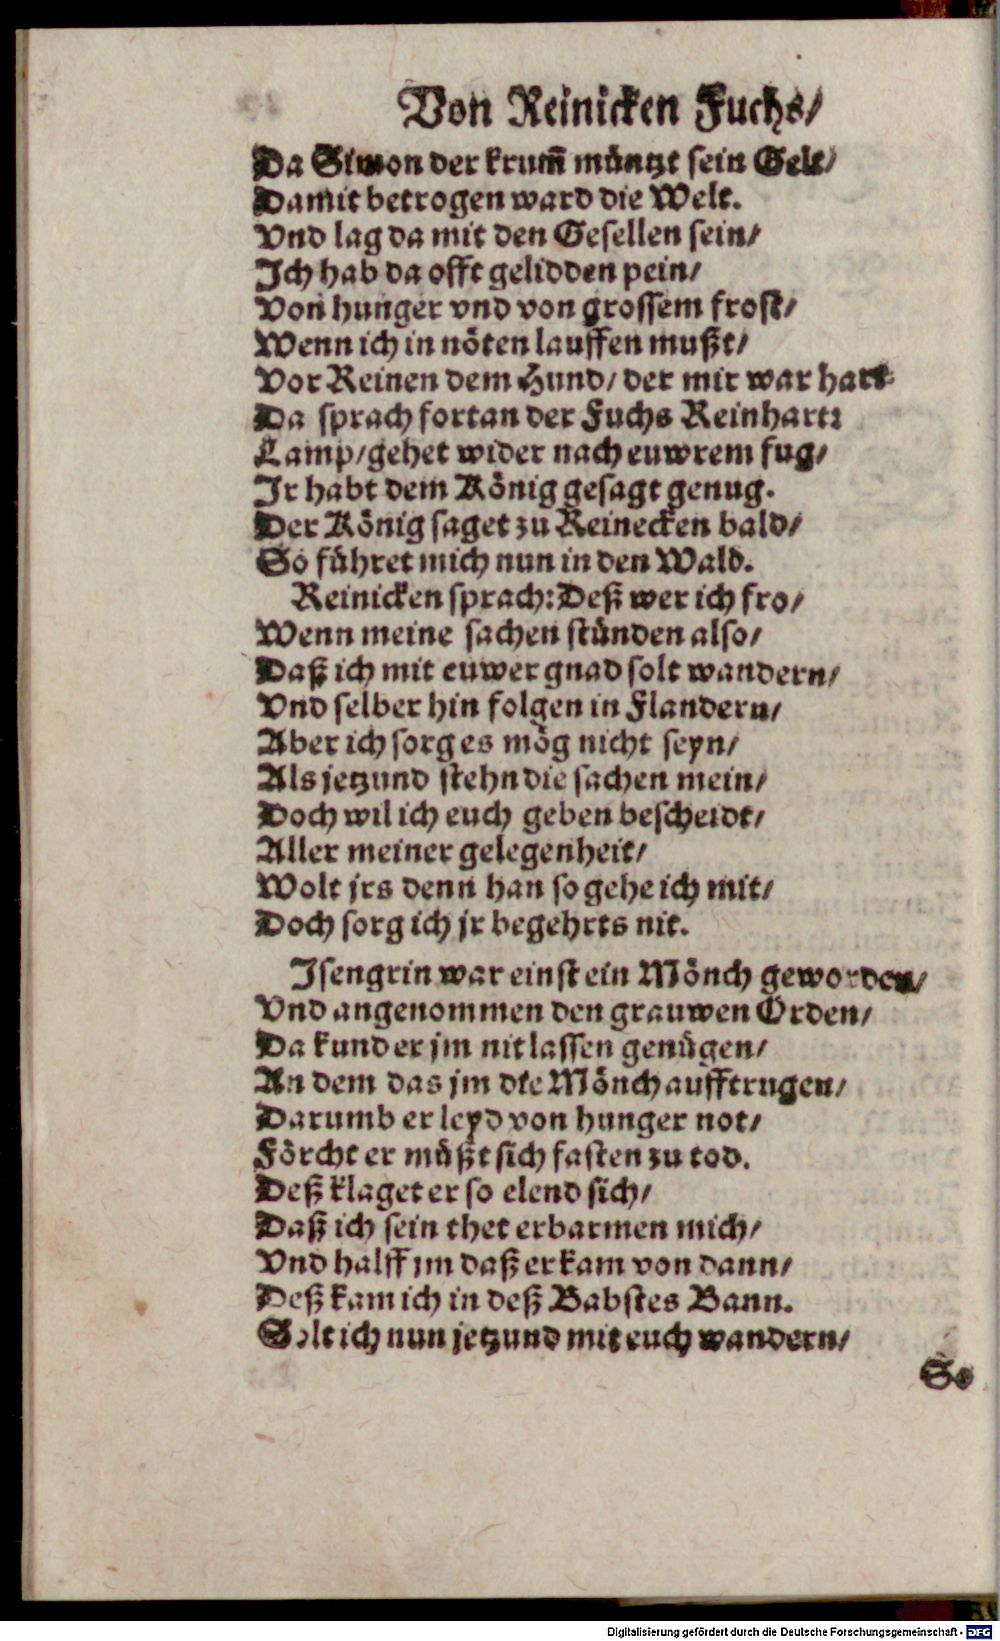 Von Reinicken Fuchs/
Da Simon der krum̃ müntzt sein Gelt/
Damit betrogen ward die Welt.
Vnd lag da mit den Gesellen sein/
Ich hab da offt gelidden pein/
Von hunger vnd von grossem frost/
Wenn ich in nöten lauffen mußt/
Vor Reinen dem Hund/ der mir war hart
Da sprach fortan der Fuchs Reinhart:
Lamp/gehet wider nach euwrem fug/
Ir habt dem König gesagt genug.
Der König saget zu Reinecken bald/
So führet mich nun in den Wald.
Reinicken sprach: Deß wer ich fro/
Wenn meine sachen stünden also/
Daß ich mit euwer gnad solt wandern/
Vnd selber hin folgen in Flandern/
Aber ich sorg es mög nicht seyn/
Als jetzund stehn die sachen mein/
Doch wil ich euch geben bescheidt/
Aller meiner gelegenheit/
Wolt jrs denn han so gehe ich mit/
Doch sorg ich jr begehrts nit.
Isengrin war einst ein Mönch geworden/
Vnd angenommen den grauwen Orden/
Da kund er jm nit lassen genügen/
An dem das jm die Mönch aufftrugen/
Darumb er leyd von hunger not/
Förcht er müßt sich fasten zu tod.
Deß klaget er so elend sich/
Daß ich sein thet erbarmen mich/
Vnd halff jm daß er kam von dann/
Deß kam ich in deß Babstes Bann.
Solt ich nun jetzund mit euch wandern/
So
Digitalisierung gefördert durch die Deutsche Forschungsgemeinschaft - DFG